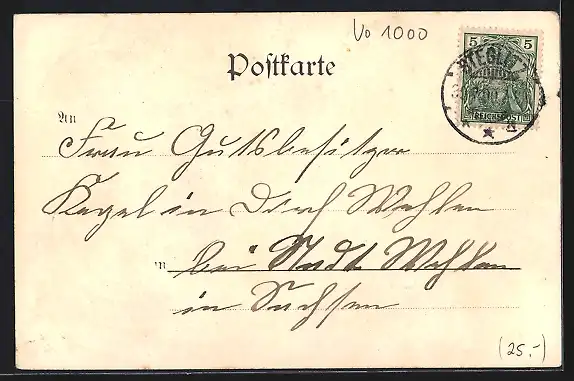 Vo 1000
5 5
STEGLITZ
REICHSPOST
Postkarte
An
Frau Gutsbesitzer
Kagel in Dorf Wehlen
in bei Stadt Wehlen
in Sachsen
(25.-)